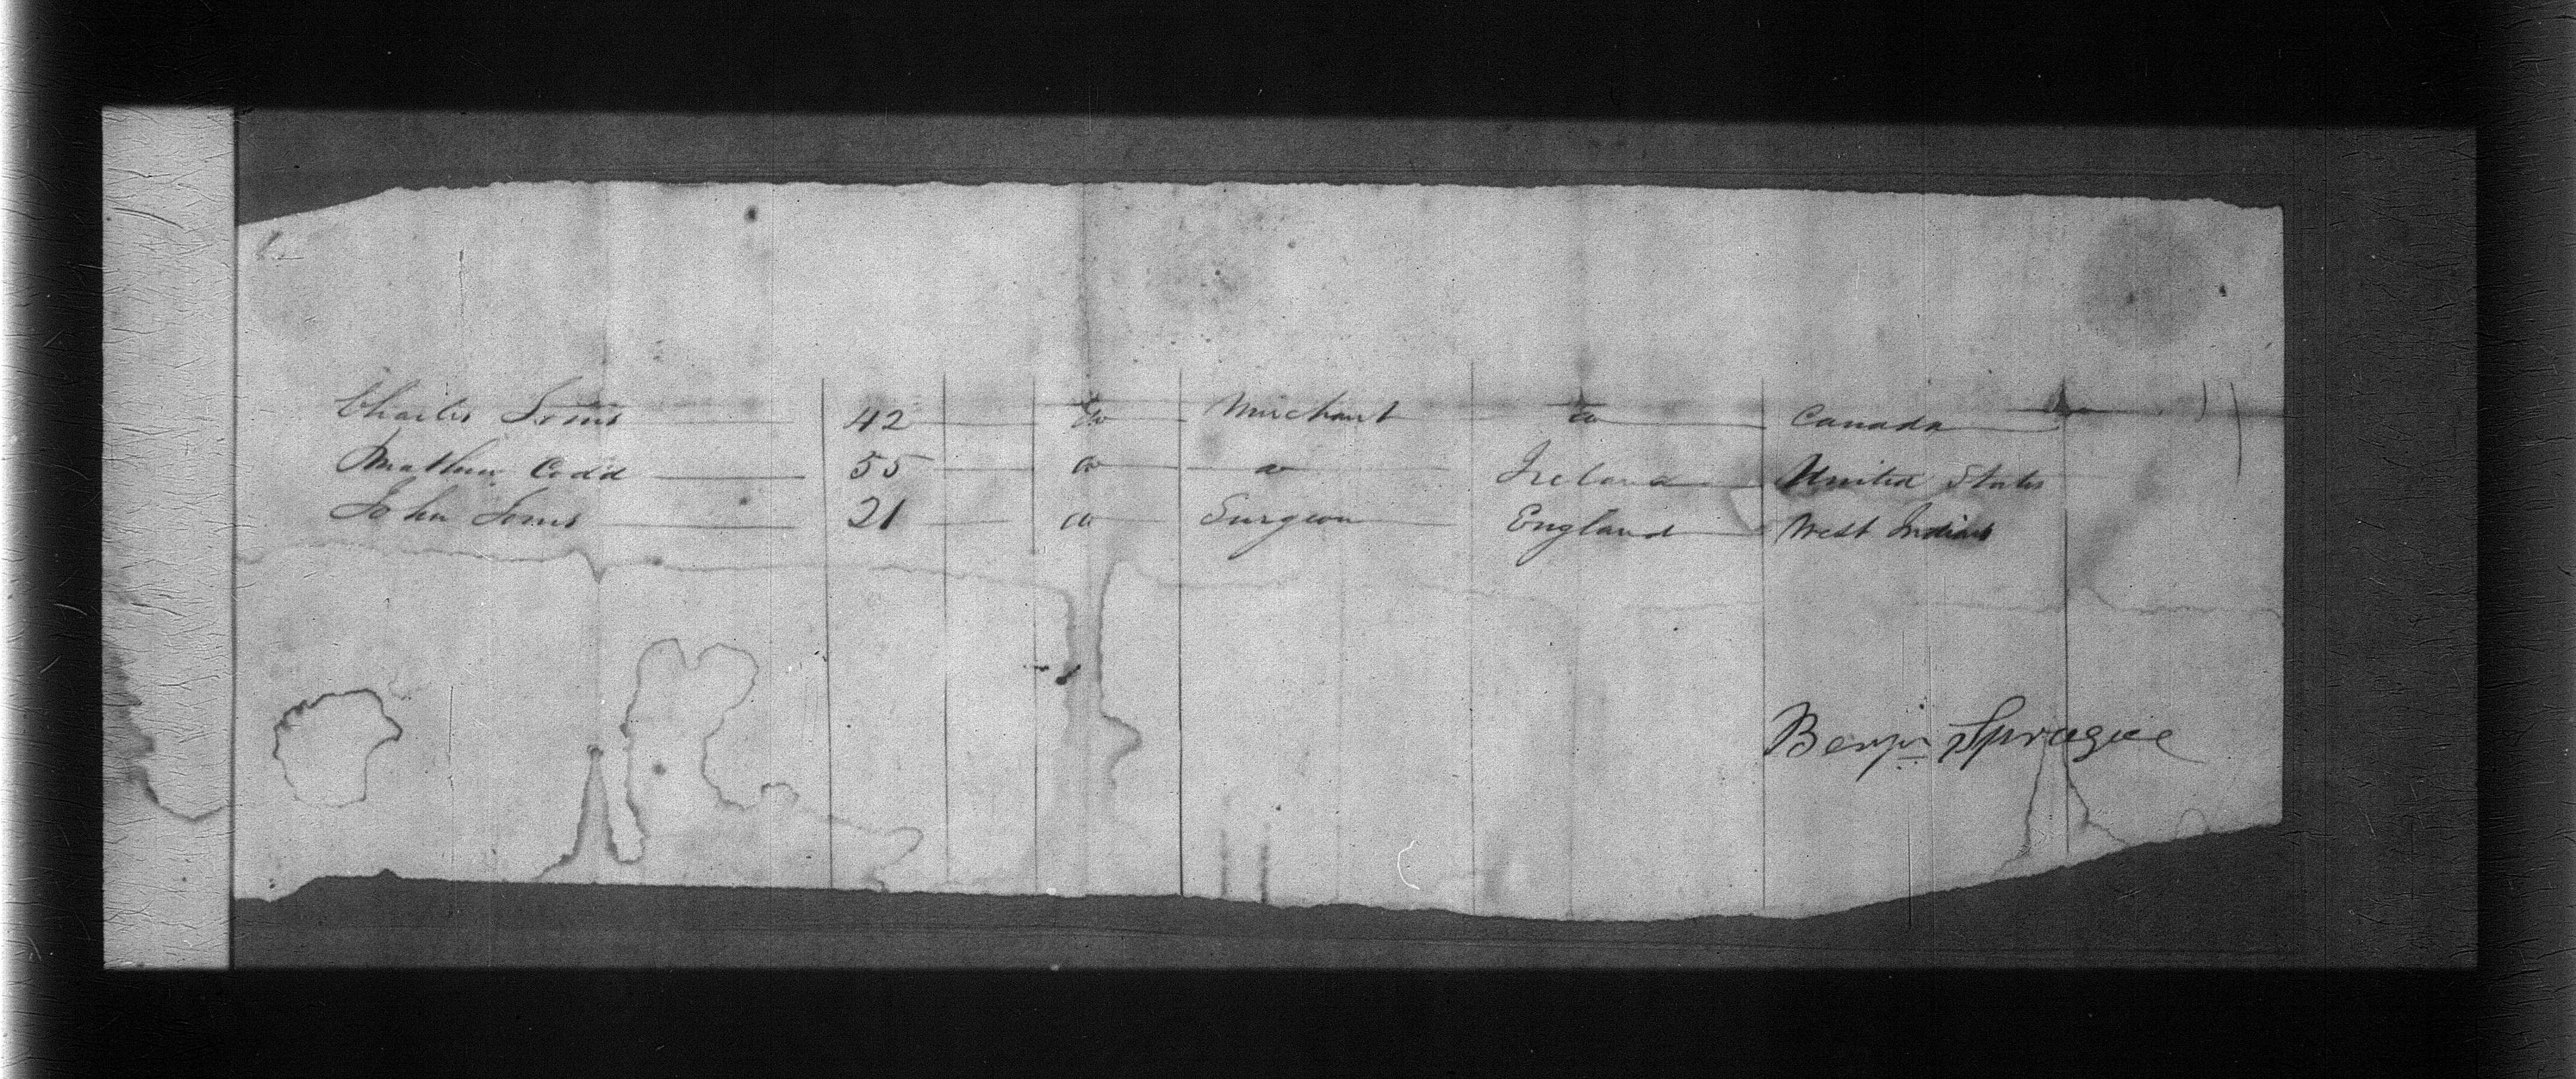 Charles Soms 42 do Merchant do Canada
Mathew Codd 55 do do Ireland United States
John Soms 21 do Surgeon England West Indies
Benjn Sprague